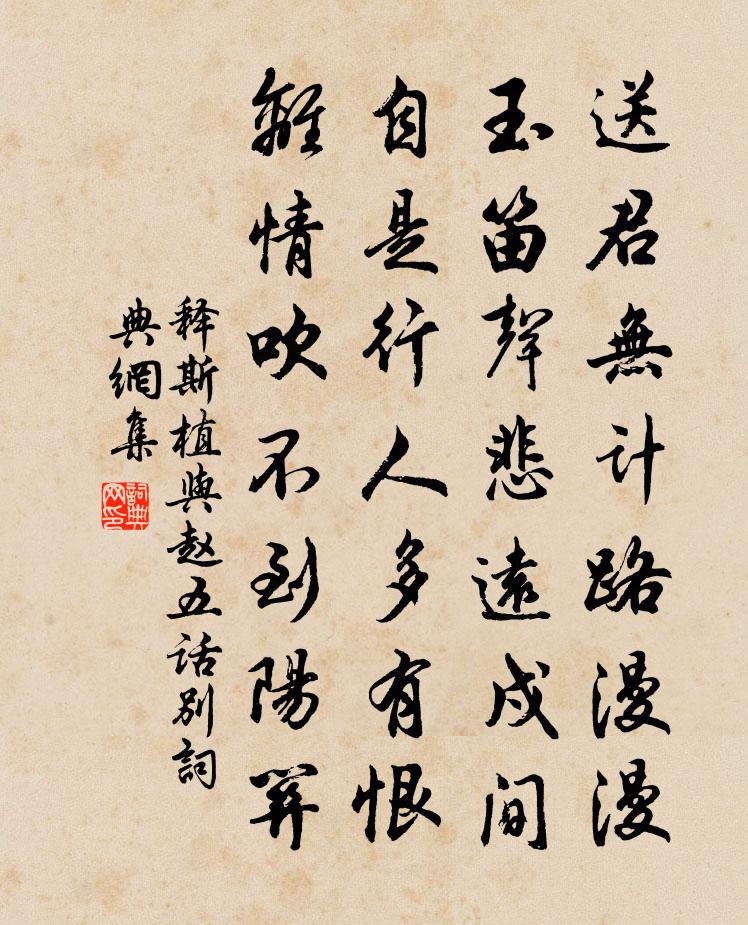 送君無計路漫漫
玉笛聲悲遠戍間
自是行人多有恨
離情吹不到陽關
释斯植與赵五话别詞
典網集
詞典
网印